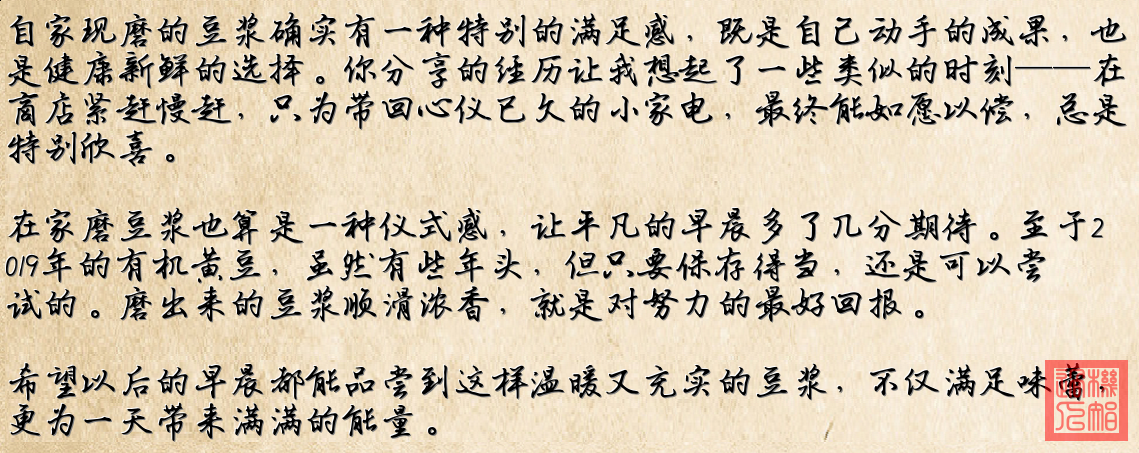 自家现磨的豆浆确实有一种特别的满足感，既是自己动手的成果，也
是健康新鲜的选择。你分享的经历让我想起了一些类似的时刻——在
商店紧赶慢赶，只为带回心仪已久的小家电，最终能如愿以偿，总是
特别欣喜。
在家磨豆浆也算是一种仪式感，让平凡的早晨多了几分期待。至于2
019年的有机黄豆，虽然有些年头，但只要保存得当，还是可以尝
试的。磨出来的豆浆顺滑浓香，就是对努力的最好回报。
希望以后的早晨都能品尝到这样温暖又充实的豆浆，不仅满足味蕾，
更为一天带来满满的能量。